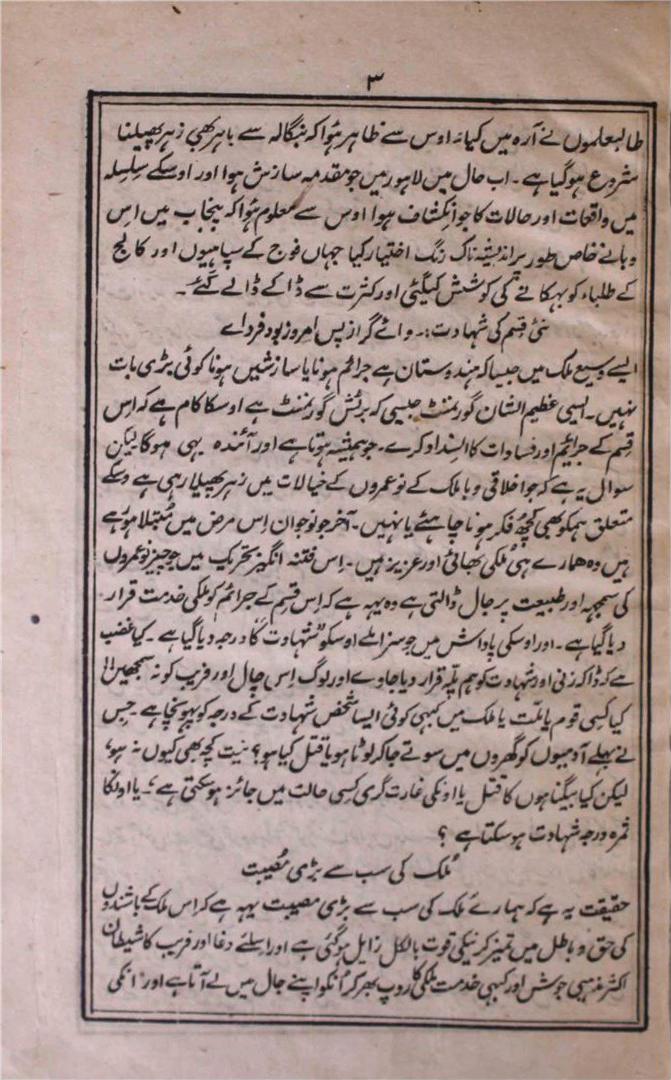 ۳
طالبعلموں نے آرہ میں کیا۔ اوس سے ظاہر ہوا کہ بنگالہ سے باہر بھی زہر پھیلنا
شروع ہو گیا ہے۔ اب حال میں لاہور میں جو مقدمہ سازش ہوا اور اوسکے سلسلہ
میں واقعات اور حالات کا جو انکشاف ہوا اوس سے معلوم ہوا کہ پنجاب میں اس
وبا نے خاص طور پر اندیشہ ناک رنگ اختیار کیا جہاں فوج کے سپاہیوں اور کالج
کے طلباء کو بہکانے کی کوشش کیگئی اور کثرت سے ڈاکے ڈالے گئے۔
نئی قسم کی شہادت:۔ وائے گر از پس امروز بود فردائے
ایسے وسیع ملک میں جیسا کہ ہندوستان ہے جرائم ہونا یا سازشیں ہونا کوئی بڑی بات
نہیں۔ ایسی عظیم الشان گورمنٹ جیسی کہ برٹش گورمنٹ ہے اوسکا کام ہے کہ اس
قسم کے جرائم اور فسادات کا انسداد کرے۔ جو ہمیشہ ہوتا ہے اور آئندہ یہی ہوگا لیکن
سوال یہ ہے کہ جو اخلاقی وبا ملک کے نوعمروں کے خیالات میں زہر پھیلا رہی ہے وسکے
متعلق ہمکو بھی کچھ فکر ہونا چاہئے یا نہیں۔ آخر جو نوجوان اس مرض میں مبتلا ہوئے
ہیں وہ ہمارے ہی ملکی بھائی اور عزیز ہیں۔ اس فتنہ انگیز تحریک میں جو چیز نوعمروں
کی سمجہہ اور طبیعت پر جال ڈالتی ہے وہ یہہ ہے کہ اس قسم کے جرائم کو ملکی خدمت قرار
دیا گیا ہے۔ اور اوسکی پاداش میں جو سزا ملے اوسکو "شہادت" کا درجہ دیا گیا ہے۔ کیا غضب
ہے کہ ڈاکہ زنی اور شہادت کو ہم پلہ قرار دیا جاوے اور لوگ اس چال اور فریب کو نہ سمجھیں!!
کیا کسی قوم یا ملت یا ملک میں کبہی کوئی ایسا شخص شہادت کے درجہ کو پہونچا ہے۔ جس
نے پہلے آدمیوں کو گھروں میں سوتے جا کر لوٹا ہو یا قتل کیا ہو؟ نیت کچہ بھی کیوں نہ ہو،
لیکن کیا بیگناہوں کا قتل یا اونکی غارت گری کسی حالت میں جائز ہو سکتی ہے؟۔ یا اونکا
ثمرہ درجہ شہادت ہو سکتا ہے ؟
ملک کی سب سے بڑی مصیبت
حقیقت یہ ہے کہ ہمارے ملک کی سب سے بڑی مصیبت یہہ ہے کہ اس ملک کے باشندوں
کی حق و باطل میں تمیز کرنیکی قوت بالکل زایل ہو گئی ہے اور اسلئے دغا اور فریب کا شیطان
اکثر مذہبی جوش اور کبہی خدمت ملکی کا روپ بھر کر انکو اپنے جال میں لے آتا ہے اور انکی